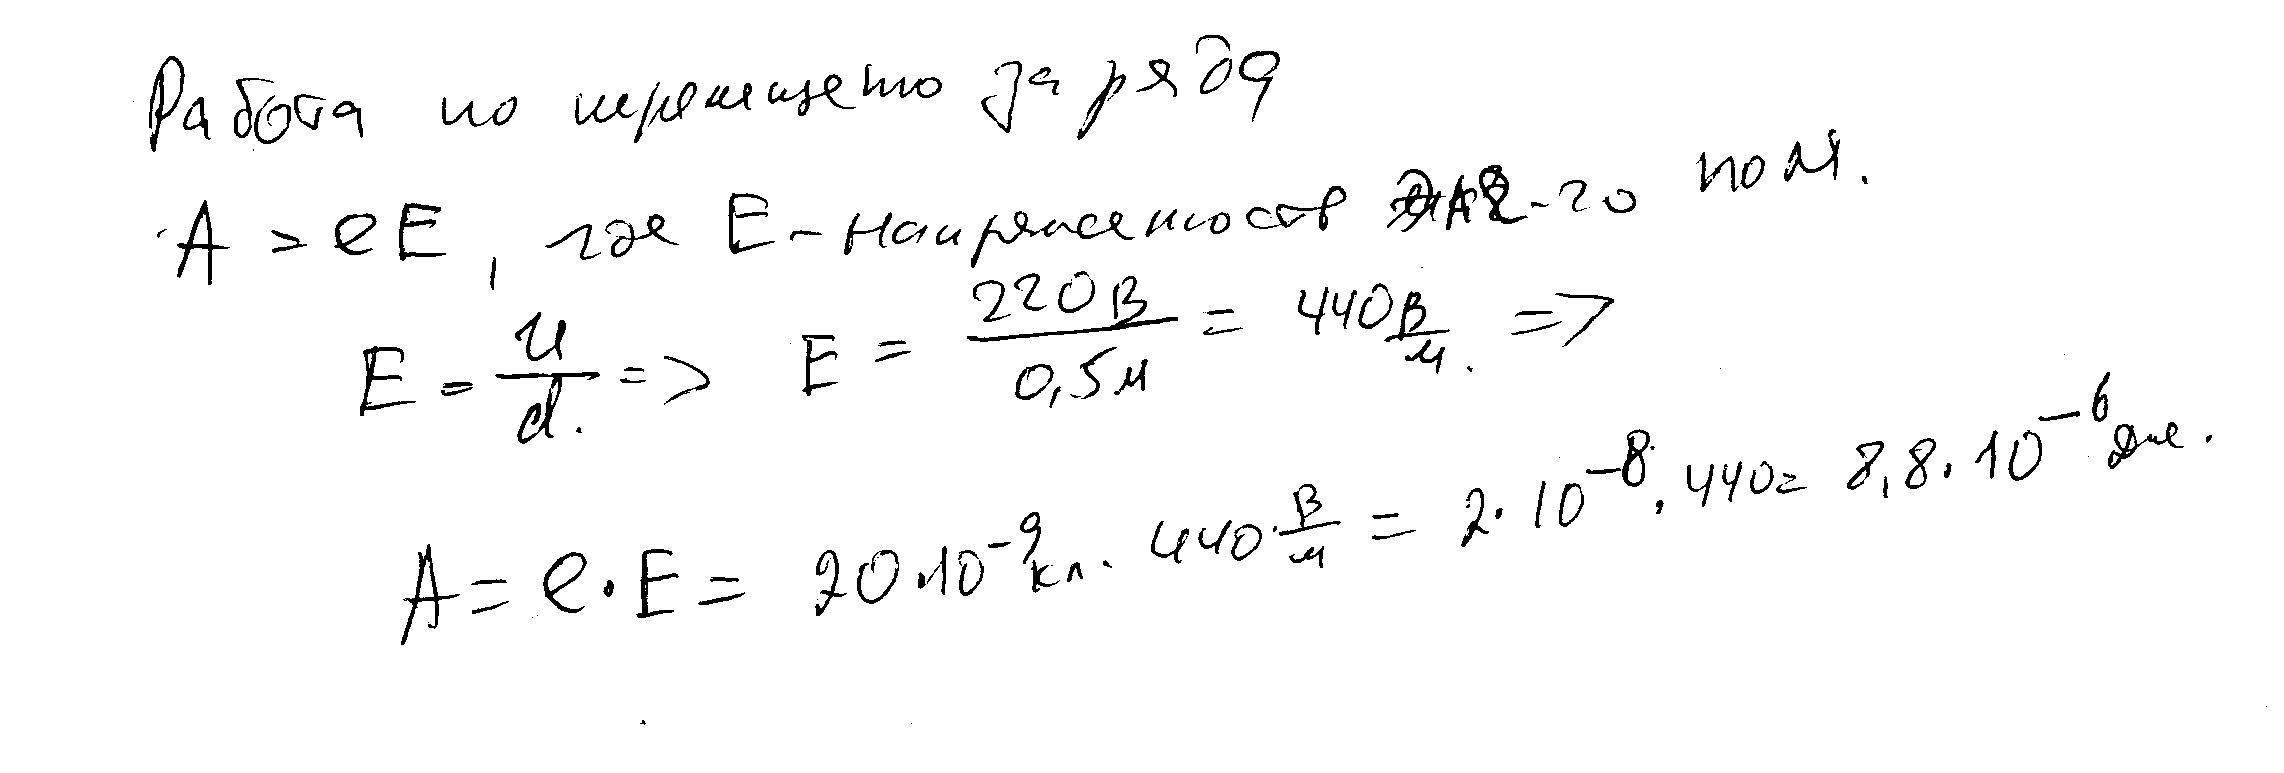 Работа по перемещению заряда
A = eE, где E - напряженность эл-го поля.
E = U/d. => E = 220В/0,5м = 440 В/м. =>
A = e·E = 20·10⁻⁹ кл. · 440 · В/м = 2·10⁻⁸ · 440 = 8,8·10⁻⁶ Дж.